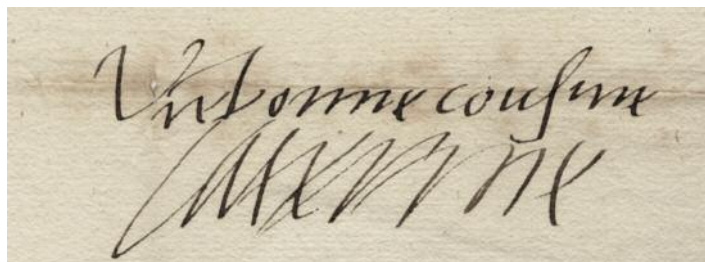 Vre bonne cousine
Caterine